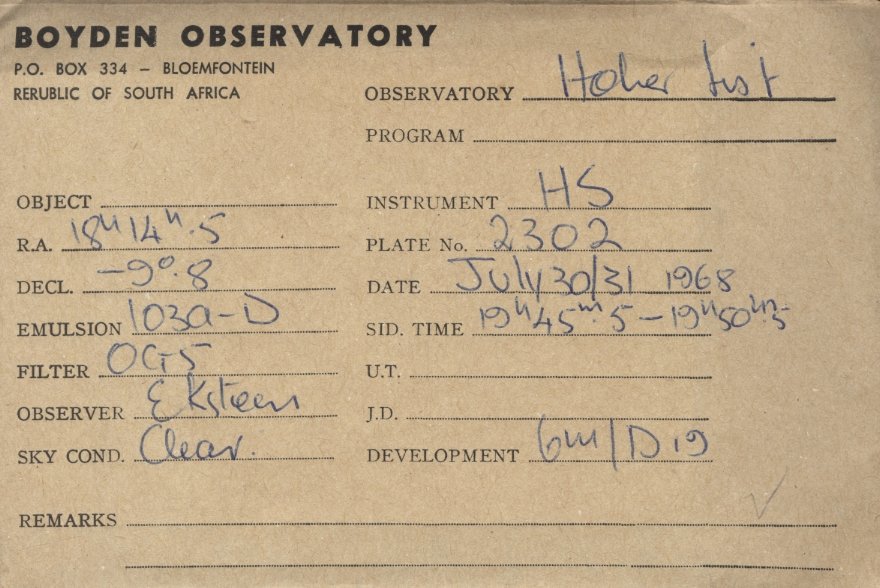 BOYDEN OBSERVATORY
P.O. BOX 334 – BLOEMFONTEIN
RERUBLIC OF SOUTH AFRICA
OBSERVATORY Hoher List
PROGRAM
OBJECT
R.A. 18h 14m.5
DECL. -9°.8
EMULSION 103a-D
FILTER OG5
OBSERVER Eksteen
SKY COND. Clear.
INSTRUMENT HS
PLATE No. 2302
DATE July 30/31 1968
SID. TIME 19h 45m.5 – 19h 50m.5
U.T.
J.D.
DEVELOPMENT 6m/D19
REMARKS